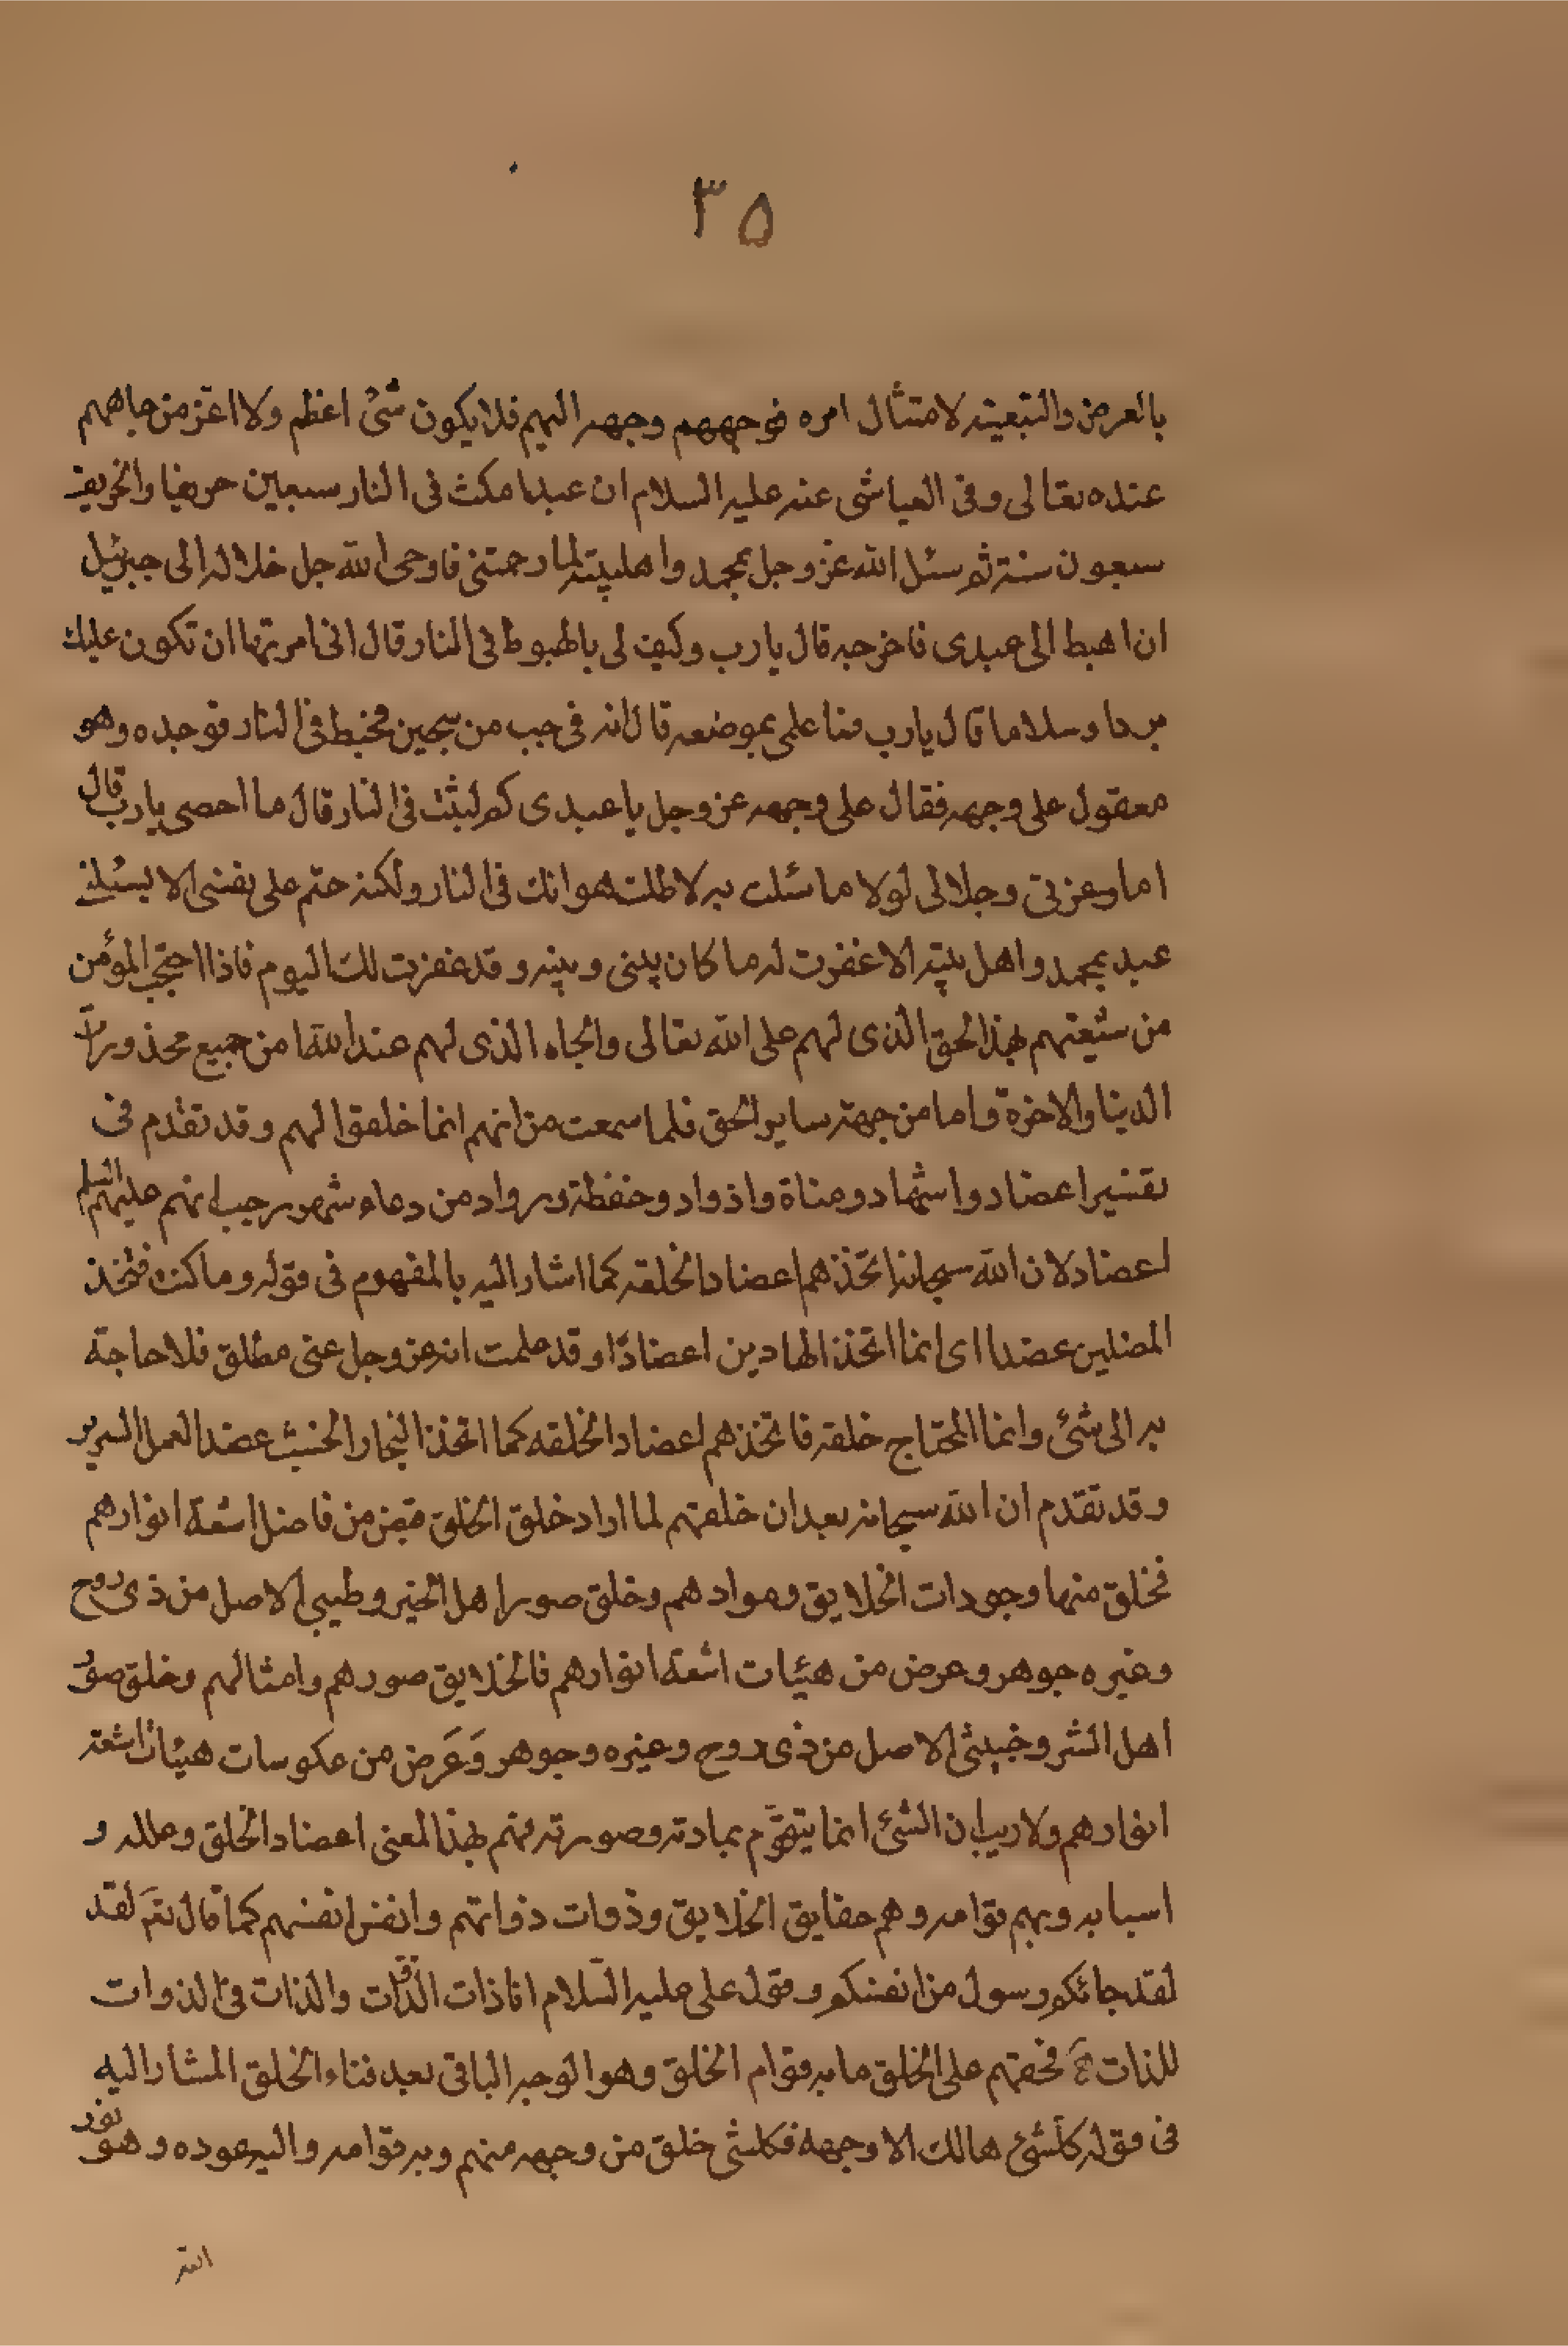 ٣٥
بالعرض والتبعية لامتثال امره فوجههم وجهه اليهم فلا يكون شئ اعظم ولا اعز من جاههم
عنده تعالى وفى العياشى عنه عليه السلام ان عبدا مكث فى النار سبعين خريفا والخريف
سبعون سنة ثم سئل الله عز وجل بمحمد واهلبيته لما رحمتنى فاوحى الله جل جلاله الى جبرئيل
ان اهبط الى عبدى فاخرجه قال يا رب وكيف لى بالهبوط فى النار قال انى امرتها ان تكون عليك
بردا وسلاما قال يا رب فما علمى بموضعه قال انه فى جب من سجين فهبط فى النار فوجده وهو
معقول على وجهه فقال على وجهه عز وجل يا عبدى كم لبثت فى النار قال ما احصى يا رب قال
اما وعزتى وجلالى لولا ما سئلت به لاطلت هوانك فى النار ولكنه حتم على نفسى الا يسئلنى
عبد بمحمد واهل بيته الا غفرت له ما كان بينى وبينه وقد غفرت لك اليوم فاذا احتجب المؤمن
من شيعتهم بهذا الحق الذى لهم على الله تعالى والجاه الذى لهم عند الله امن جميع محذورات
الدنيا والاخرة واما من جهة ساير الخلق فلما سمعت من انهم انما خلقوا لهم وقد تقدم فى
تفسير اعضاد واشهاد ومناة واذواد وحفظة ورواد من دعاء شهر رجب انهم عليهم السلم
اعضاد لان الله سبحانه اتخذهم اعضادا لخلقه كما اشار اليه بالمفهوم فى قوله وما كنت متخذ
المضلين عضدا اى انما اتخذ الهادين اعضادًا وقد علمت انه عز وجل غنى مطلق فلا حاجة
به الى شئ وانما المحتاج خلقه فاتخذهم اعضادا لخلقه كما اتخذ النجار الخشب عضدا لعمل السرير
وقد تقدم ان الله سبحانه بعد ان خلقهم لما اراد خلق الخلق قبض من فاضل اشعة انوارهم
فخلق منها وجودات الخلايق وموادهم وخلق صور اهل الخير وطيبى الاصل من ذى روح
وغيره جوهر وعرض من هيئات اشعة انوارهم فالخلايق صورهم وامثالهم وخلق صور
اهل الشر وخبيثى الاصل من ذى روح وغيره وجوهر وَعَرض من عكوسات هيئات اشعة
انوارهم ولا ريب ان الشئ انما يتقوّم بمادته وصورته فهم بهذا المعنى اعضاد الخلق وعلله و
اسبابه وبهم قوامه وهم حقايق الخلايق وذوات ذواتهم وانفس انفسهم كما قال تعَ لقد
لقد جائكم رسول من انفسكم وقول على عليه السّلام انا ذات الذوات والذات فى الذوات
للذات فحقهم على الخلق ما به قوام الخلق وهو الوجه الباقى بعد فناء الخلق المشار اليه
فى قوله كلشئ هالك الا وجهه فكلشى خلق من وجهه منهم وبه قوامه واليه عوده وهو نور
الله